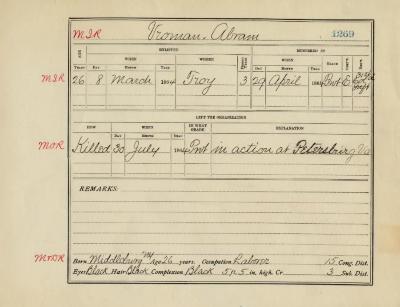 MIR Vroman, Abram 1269
ENLISTED MUSTERED IN
AGE WHEN WHERE PERIOD YEARS WHEN GRADE CO'Y REG'T
YEARS DAY MONTH YEAR DAY MONTH YEAR
MIR 26 8 March 1864 Troy 3 29 April 1864 Pvt E
LEFT THE ORGANIZATION
HOW WHEN IN WHAT GRADE EXPLANATION
DAY MONTH YEAR
MOR Killed 30 July 1864 Pvt in action at Petersburg Va
REMARKS:
Born Middleburg NY Age 26 years. Occupation Laborer 15 Cong. Dist.
MroR Eyes Black Hair Black Complexion Black 5 ft 5 in. high. Cr. 3 Sub. Dist.